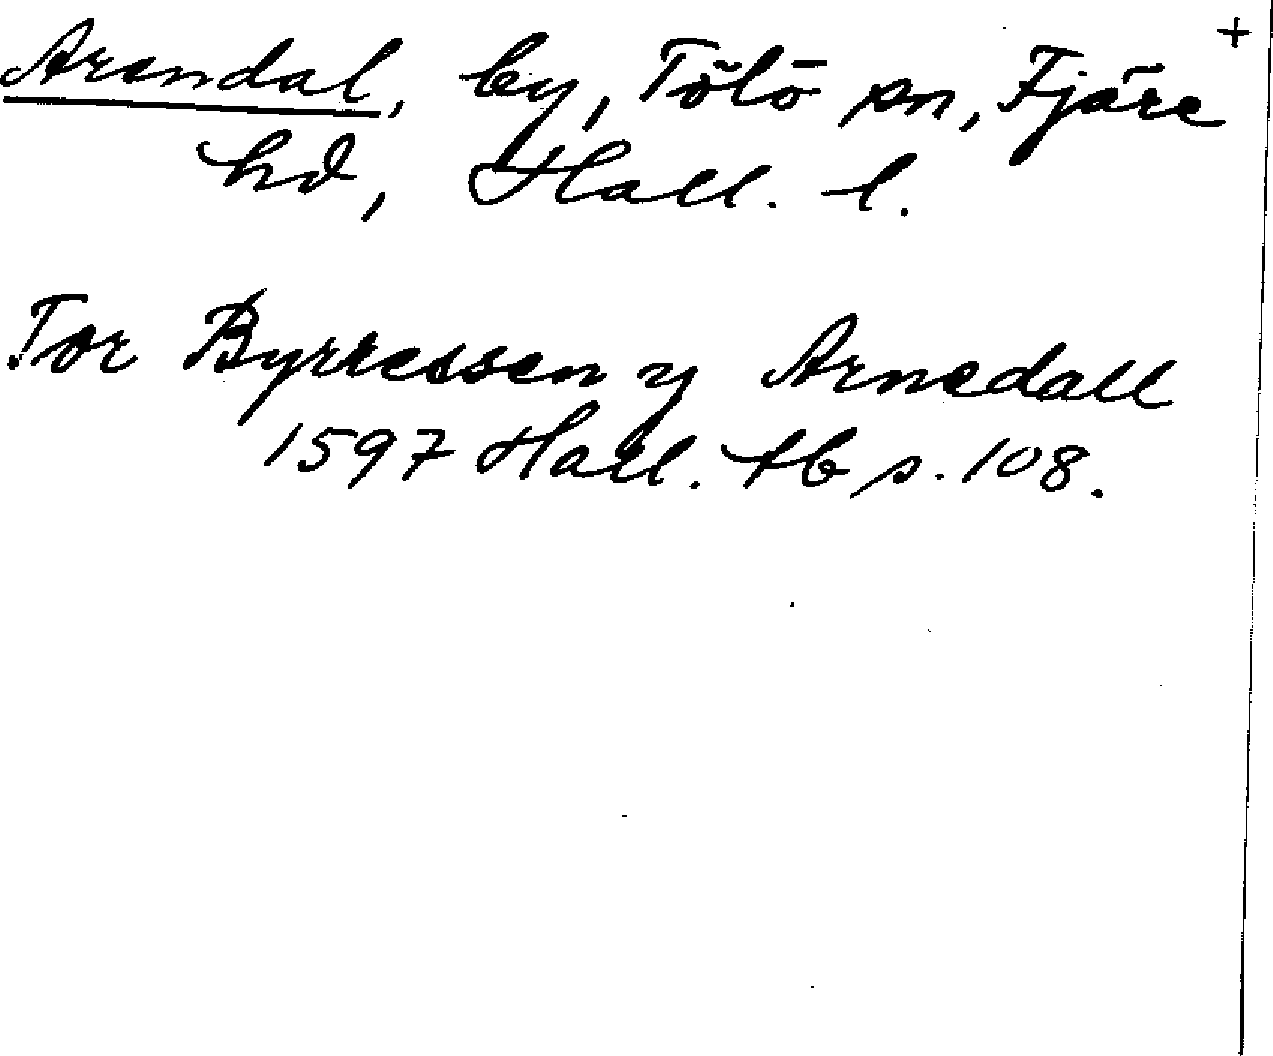 +
Arendal, by, Tölö sn, Fjäre
hd, Hall. l.
Tor Byrressen y Arnedall
1597 Hall. tb s. 108.